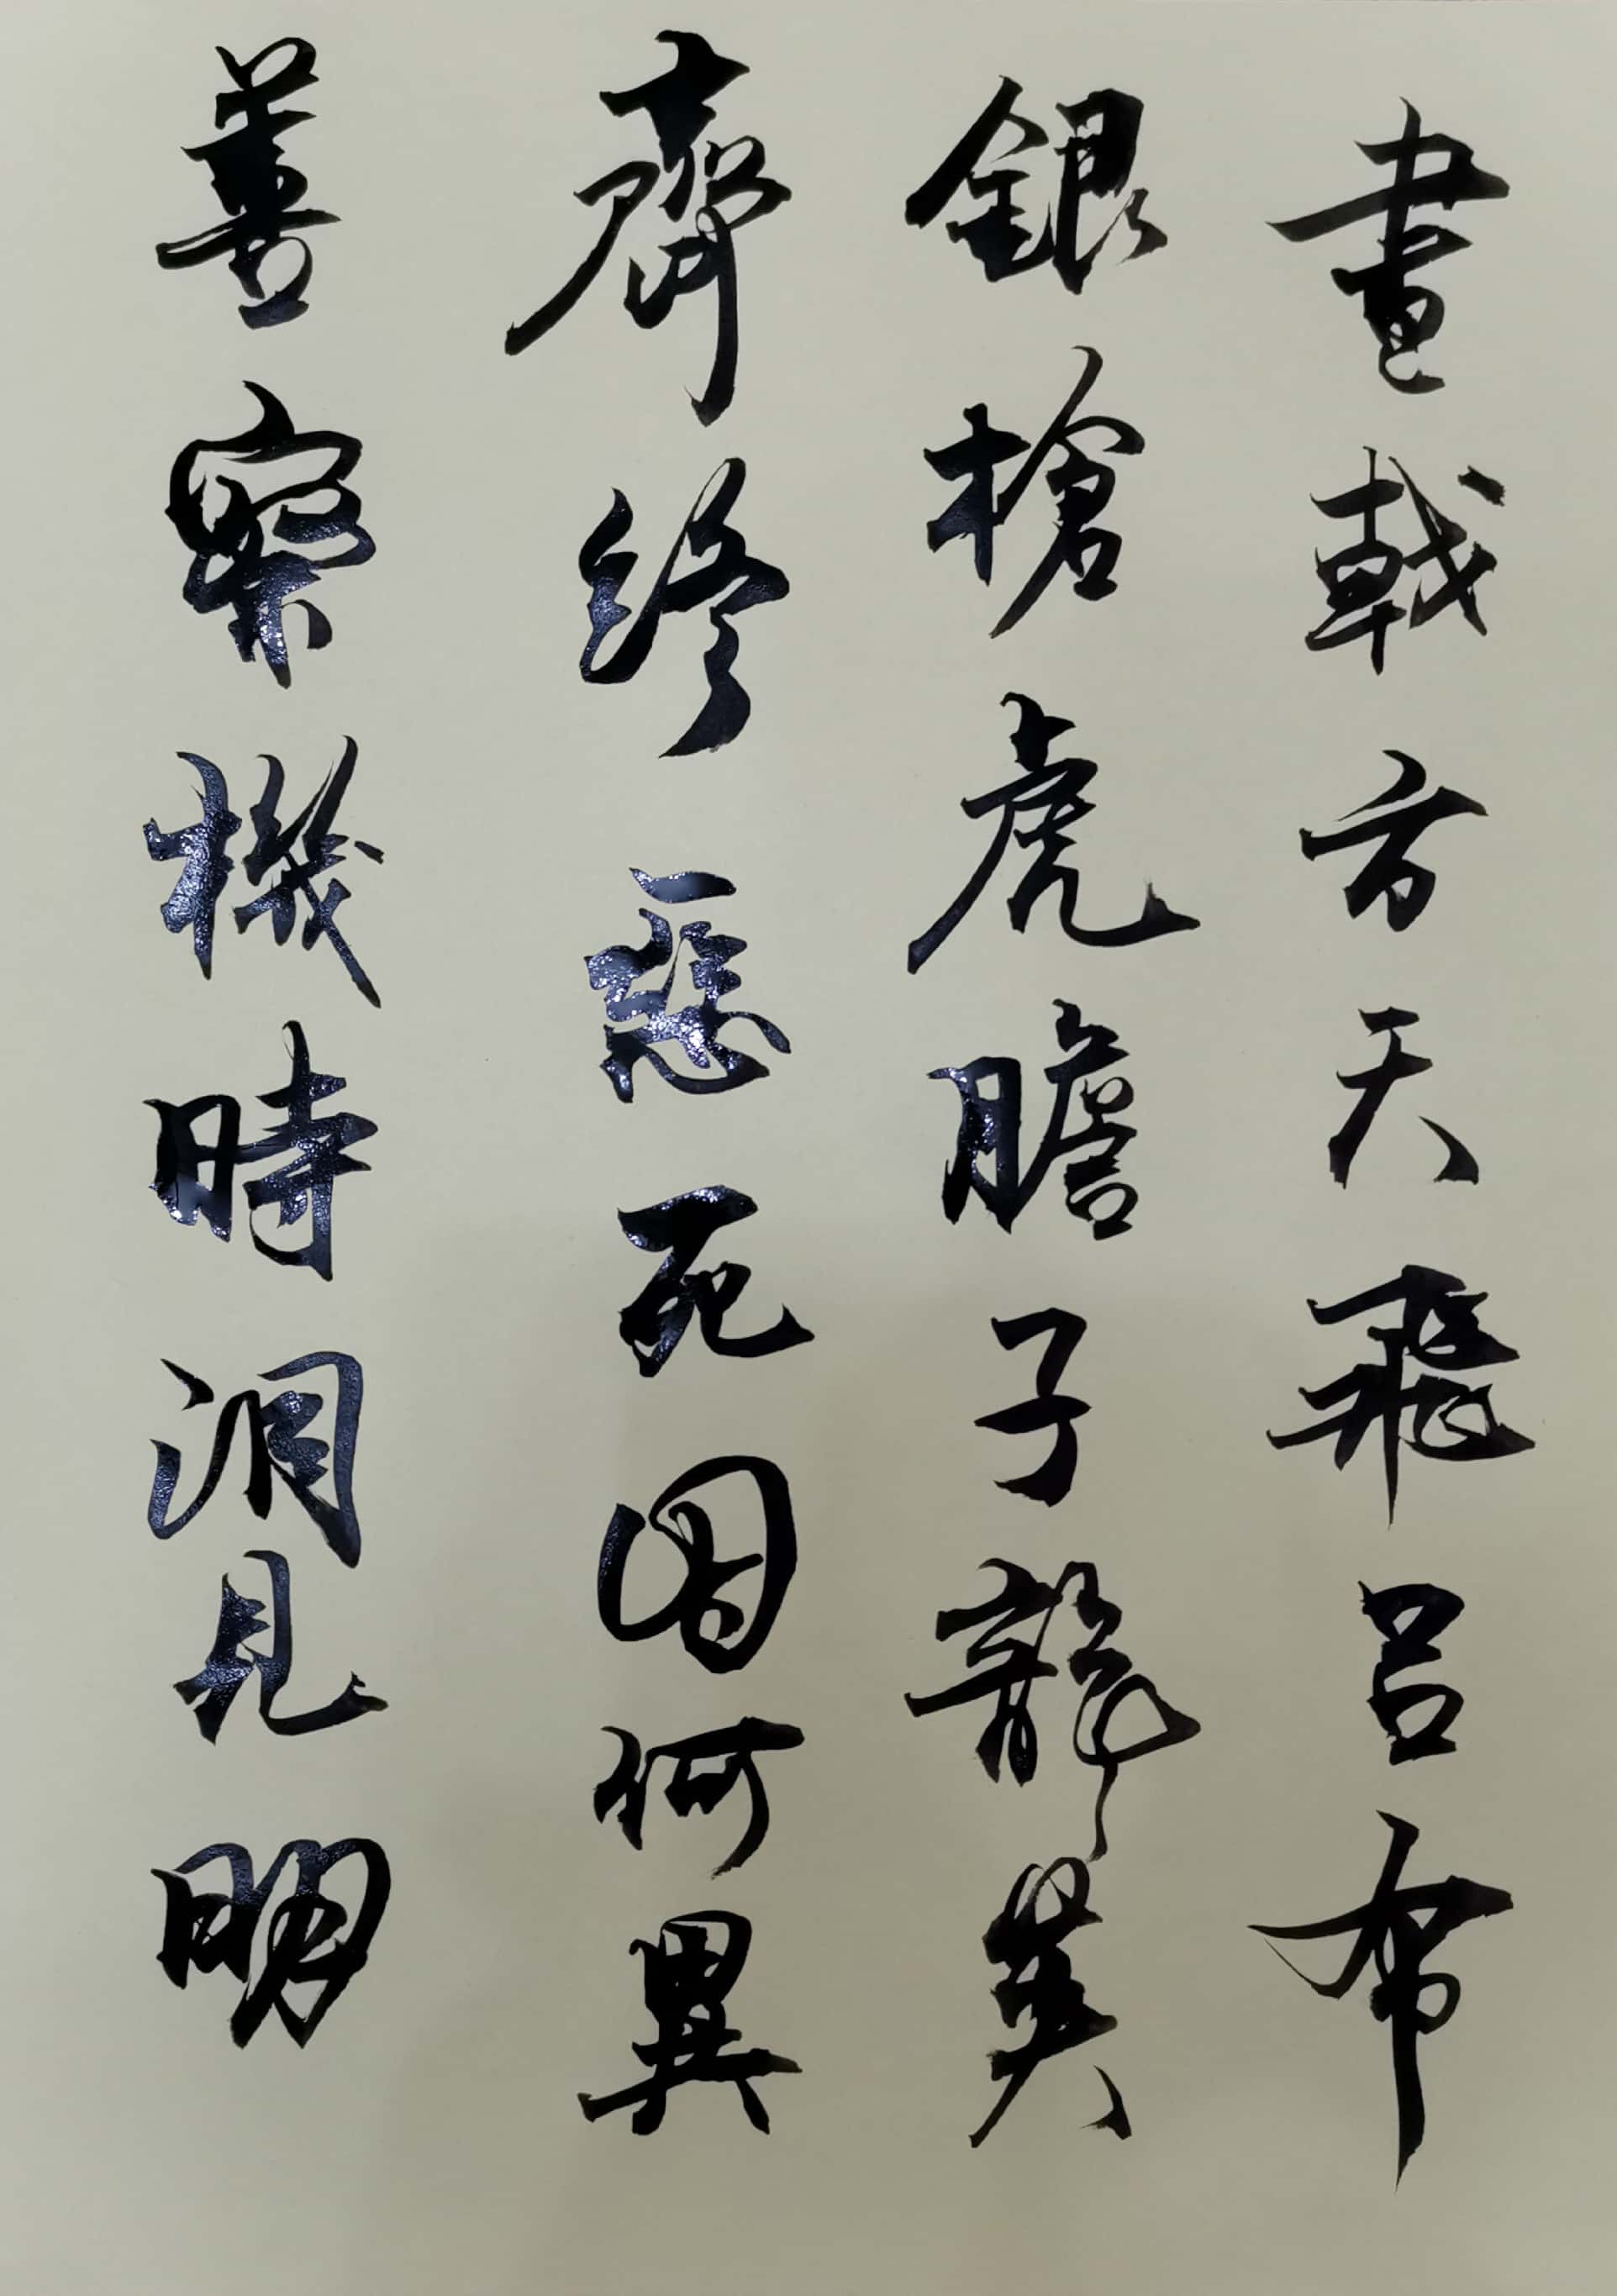 畫戟方天飛呂布
銀槍虎膽子龍英
齊終惡死因何異
善察機時洞見明